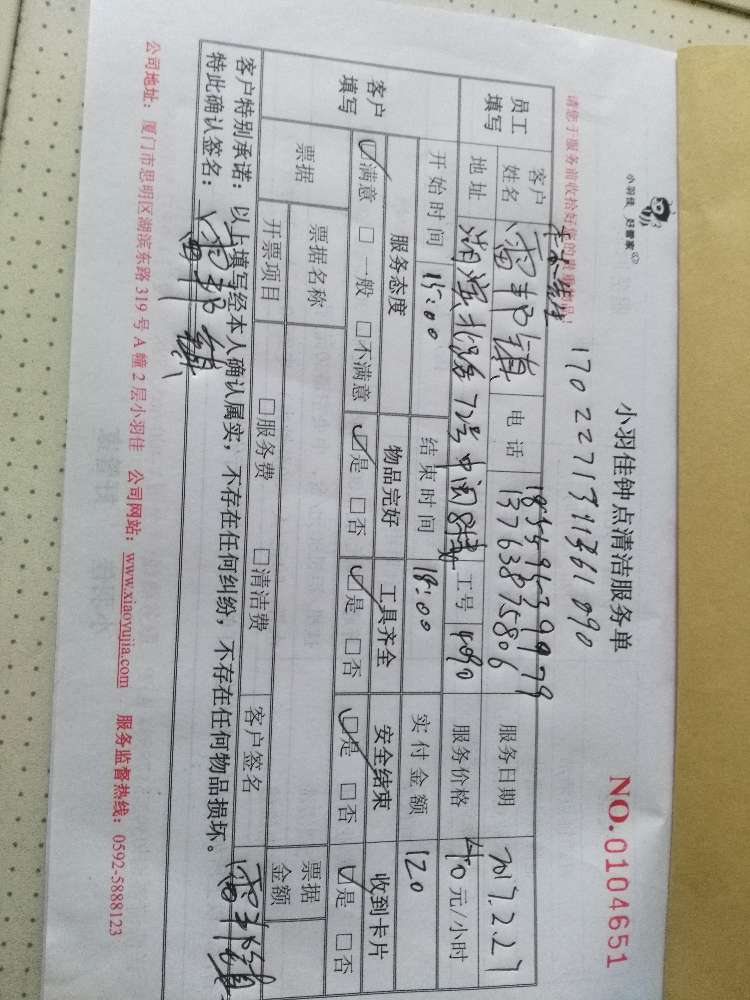 小羽佳 好管家
小羽佳钟点清洁服务单
NO.0104651
请您于服务前收拾好您的贵重物品！
员工填写 客户姓名 电话 13763875806 服务日期 2017.2.27
地址 湖滨北路72号中闽 工号 4090 服务价格 40元/小时
开始时间 15:00 结束时间 18:00 实付金额 120
客户填写 服务态度 物品完好 工具齐全 安全结束 收到卡片
☑满意 □一般 □不满意 ☑是 □否 ☑是 □否 ☑是 □否 ☑是 □否
票据 票据名称 票据金额
开票项目 □服务费 □清洁费 客户签名
客户特别承诺：以上填写经本人确认属实，不存在任何纠纷，不存在任何物品损坏。
特此确认签名：
公司地址：厦门市思明区湖滨东路319号A幢2层小羽佳 公司网站：www.xiaoyujia.com 服务监督热线：0592-5888123